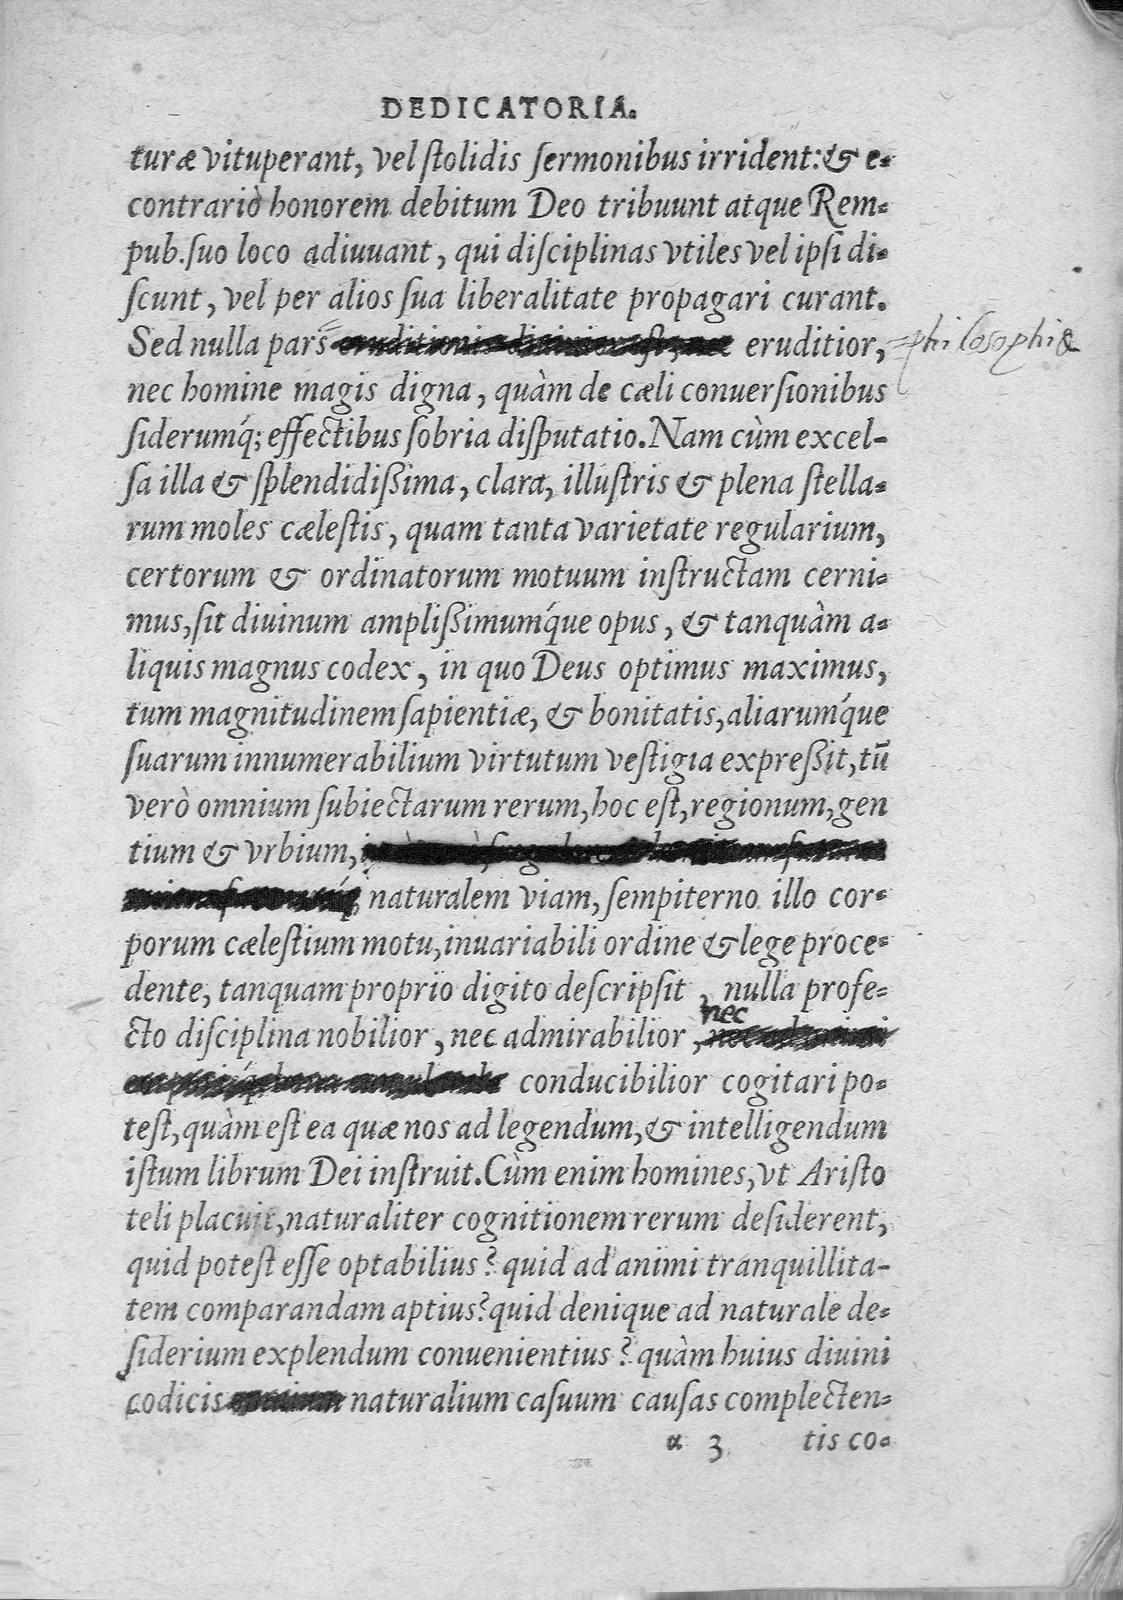 DEDICATORIA.
turæ vituperant, vel ſtolidis ſermonibus irrident: & e-
contrariò honorem debitum Deo tribuunt atque Rem-
pub. ſuo loco adiuuant, qui diſciplinas vtiles vel ipſi di-
ſcunt, vel per alios ſua liberalitate propagari curant.
Sed nulla pars eruditior, philosophiæ
nec homine magis digna, quàm de cæli conuerſionibus
ſiderumq́; effectibus ſobria diſputatio. Nam cùm excel-
ſa illa & ſplendidißima, clara, illuſtris & plena ſtella-
rum moles cæleſtis, quam tanta varietate regularium,
certorum & ordinatorum motuum inſtructam cerni-
mus, ſit diuinum amplißimumq́ue opus, & tanquàm a-
liquis magnus codex, in quo Deus optimus maximus,
tum magnitudinem ſapientiæ, & bonitatis, aliarumq́ue
ſuarum innumerabilium virtutum veſtigia expreßit, tū
verò omnium ſubiectarum rerum, hoc eſt, regionum, gen
tium & vrbium,
naturalem viam, ſempiterno illo cor-
porum cæleſtium motu, inuariabili ordine & lege proce-
dente, tanquam proprio digito deſcripſit, nulla profe-
nec
cto diſciplina nobilior, nec admirabilior,
conducibilior cogitari po-
teſt, quàm eſt ea quæ nos ad legendum, & intelligendum
iſtum librum Dei inſtruit. Cùm enim homines, vt Ariſto
teli placuit, naturaliter cognitionem rerum deſiderent,
quid poteſt eſſe optabilius? quid ad animi tranquillita-
tem comparandam aptius? quid denique ad naturale de-
ſiderium explendum conuenientius? quàm huius diuini
codicis naturalium caſuum cauſas complecten-
α 3 tis co-